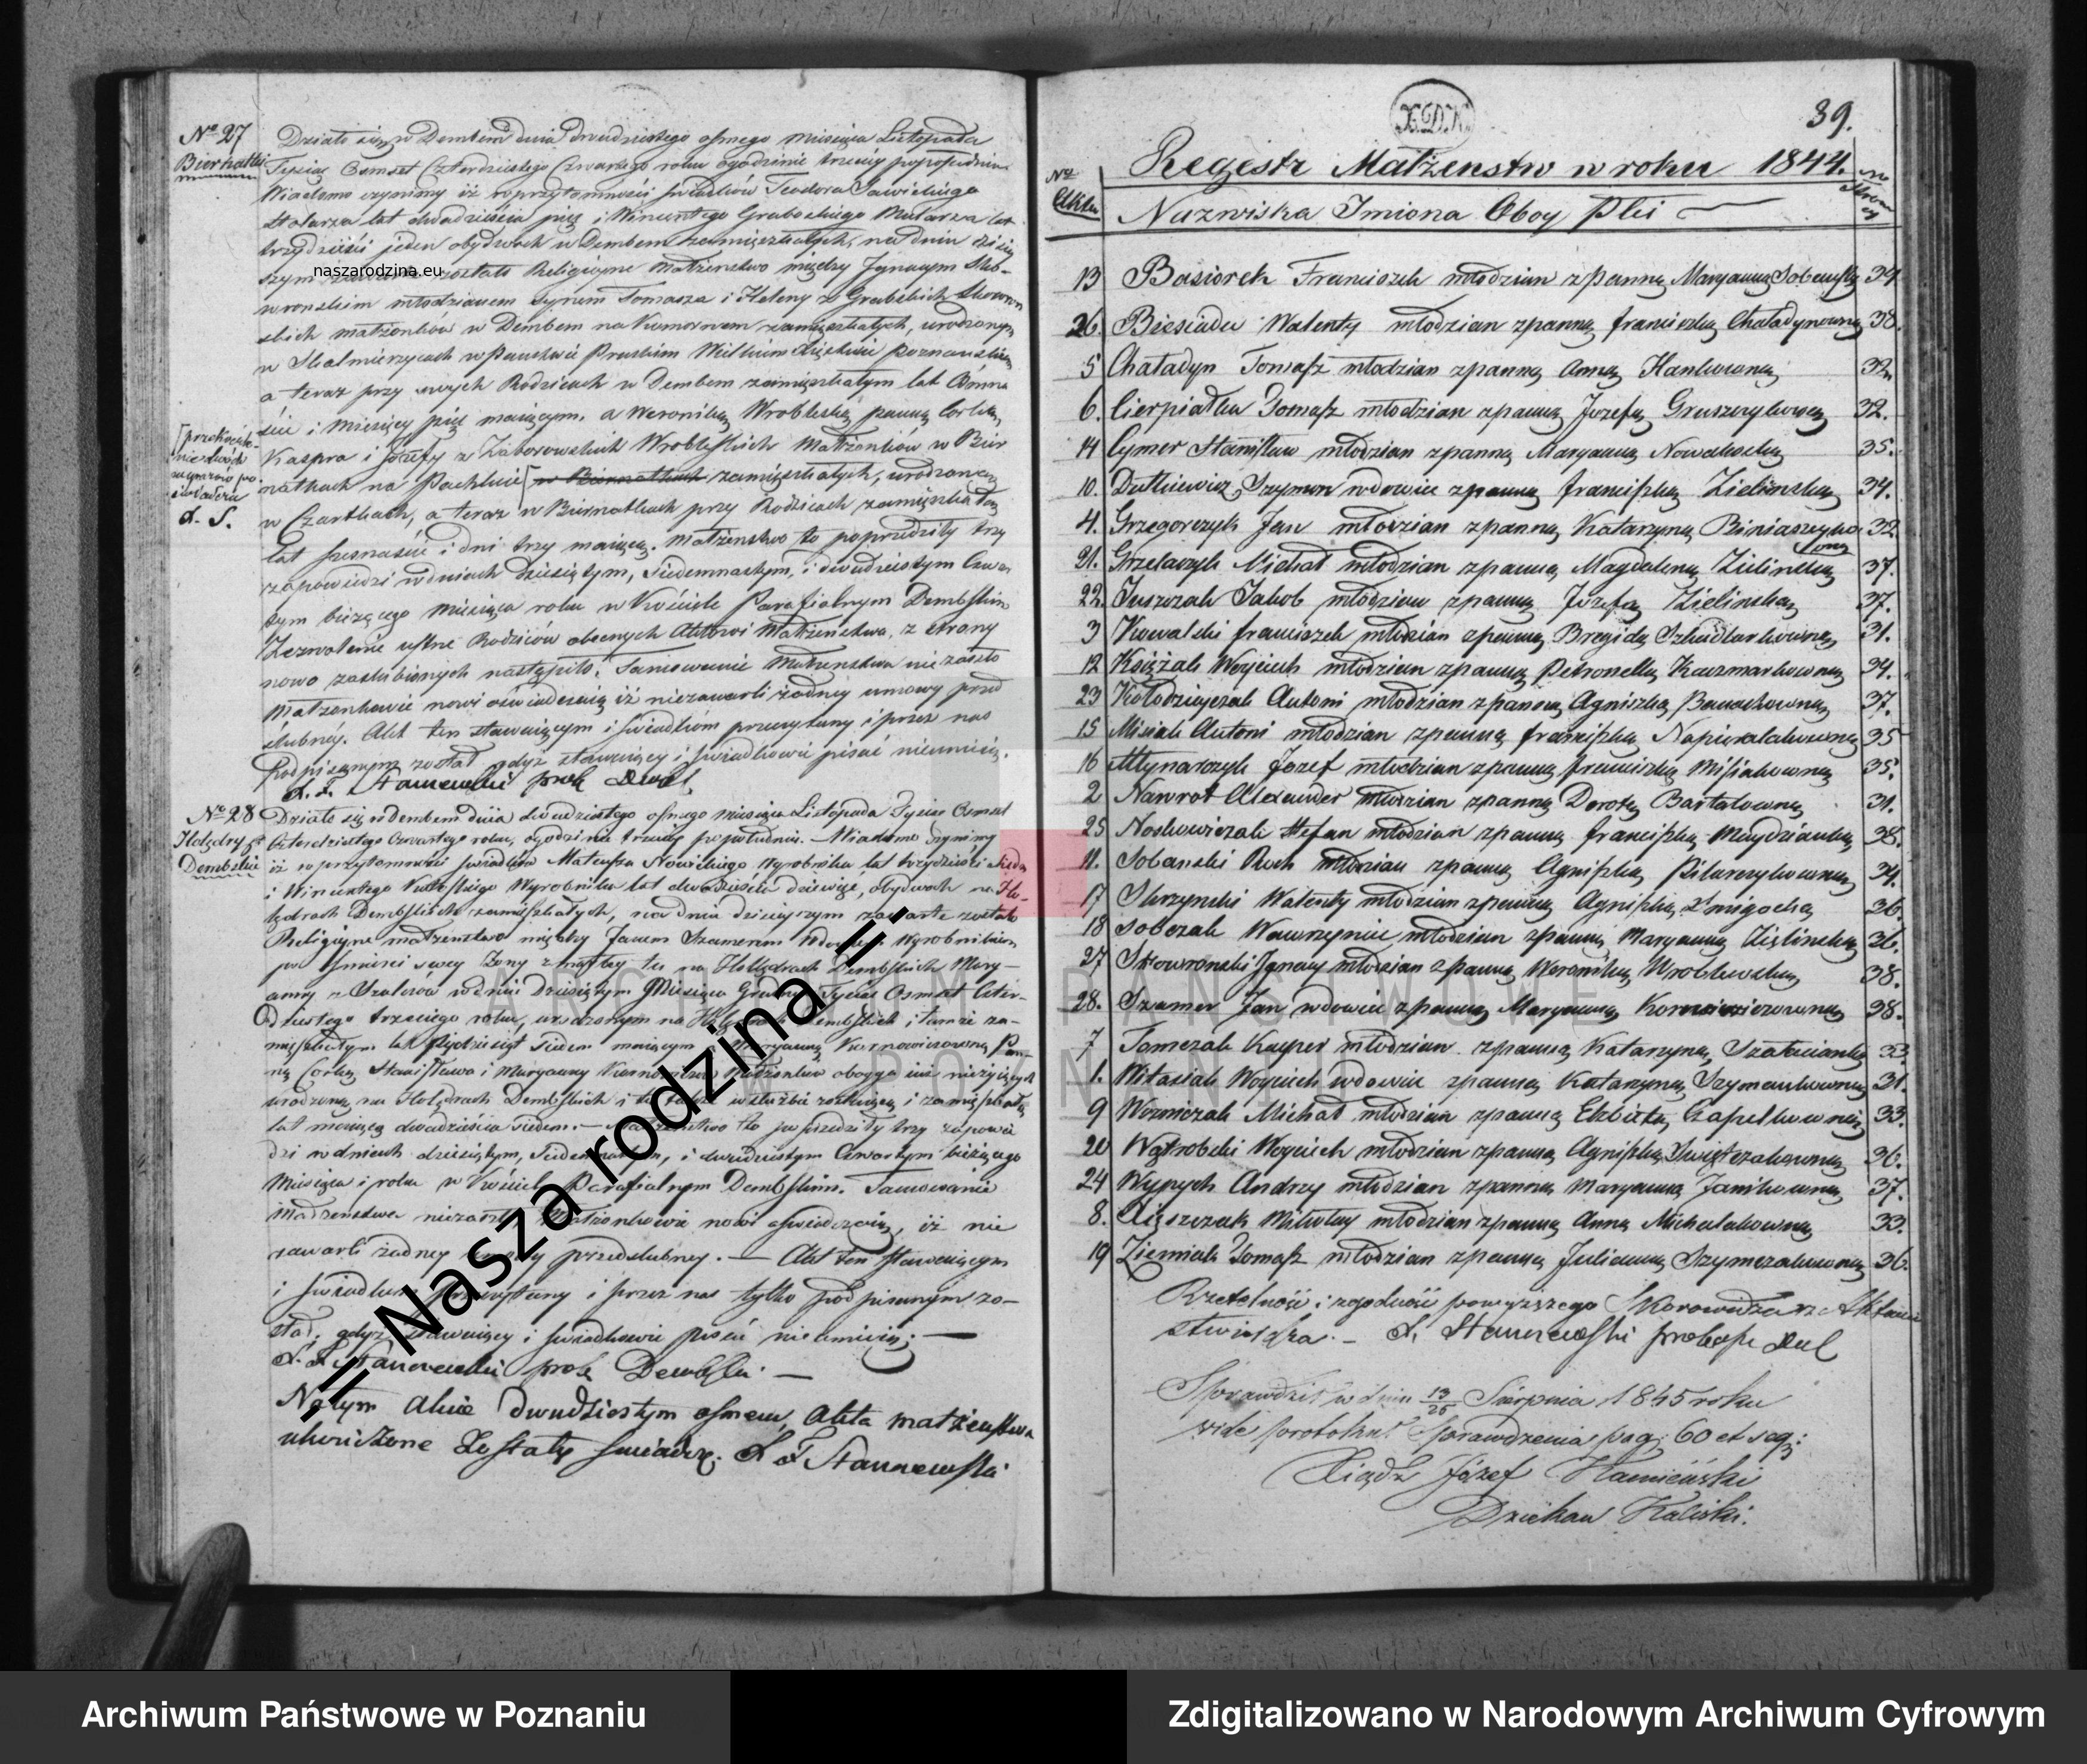 No 27
Biernatki
Działo się w Dembem dnia dwudziestego osmego Miesiąca Listopada
Tysiąc Osmset Czterdziestego Czwartego roku o godzinie trzeciey popołudniu
Wiadomo czynimy iż w przytomności świadków Teodora Sawickiego
Stolarza lat dwadzieścia pięć i Wincentego Grabskiego Mularza lat
trzydzieści jeden obydwóch w Dembem zamieszkałych, na dniu dzisiey
szym zostało Religiyne małżenstwo między Ignacym Sko-
wronskim młodzianem synem Tomasza i Heleny z Grabskich Skowron
skich małżonków w Dembem na Komornem zamieszkałych, urodzonym
w Skalmierzycach w Panstwie Pruskim Wielkim Xięstwie Poznanskim
a teraz przy swych Rodzicach w Dembem zamieszkałym lat
i Miesięcy pięć maiącym, a Weroniką Wroblewską panną Corką
Kaspra i Józefy z Zaborowskich Wroblewskich Małżonków w Bier
natkach na Pachcie w Biernatkach zamieszkałych, urodzoną
w Czartkach, a teraz w Biernatkach przy Rodzicach zamieszkałą
lat szesnaście i dni trzy maiącą. Małżenstwo to poprzedziły trzy
zapowiedzi w dniach dziesiątym, Siedemnastym, i dwudziestym Czwar
tym bieżącego Miesiąca roku w Kościele Parafialnym Dembskim
Zezwolenie ustne Rodziców obecnych Aktowi Małżenstwa, z strony
nowo zaslubionych nastąpiło. Tamowanie Małżenstwa nie zaszło
Małżonkowie nowi oświadczaią iż niezawarli żadney umowy przed
slubney. Akt ten stawaiącym i świadkom przeczytany i przez nas
Podpisanym został gdyż stawaiący i świadkowie pisać nieumieią.
No 28
Holędry
Dembskie
Działo się w Dembem dnia dwudziestego osmego miesiąca Listopada Tysiąc Osmset
Czterdziestego Czwartego roku, o godzinie trzeciey po południu. Wiadomo czynimy
iż w przytomności świadków Mateusza Nowickiego Wyrobnika lat trzydzieści siedm
i Wincentego Wyrobnika lat dwadzieścia dziewięć, obydwóch na Ho-
lędrach Dembskich zamieszkałych, na dniu dzisieyszym zawarte zostało
Religiyne małżenstwo między Janem Szamerem Wdowcem Wyrobnikiem
po śmierci swey Żony zmarłey tu na Holędrach Dembskich Mary-
anny z w dniu Dziesiątym Miesiąca Grudnia Tysiąc Osmset Czter-
dziestego trzeciego roku, urodzonym na Dembskich i tamże za-
mieszkałym lat siedem maiącym i Maryanną Pan-
ną Corką Stanisława i Maryanny Małżonków oboyga iuż nieżyiących
urodzoną na Holędrach Dembskich i w służbie zostaiącą i zamieszkałą
lat maiącą dwadzieścia siedem. — to poprzedziły trzy zapowie
dzi w dniach dziesiątym, i dwudziestym Czwartym bieżącego
Miesiąca i roku w Kościele Parafialnym Dembskim. Tamowanie
Małżenstwa niezaszło Małżonkowie nowi oświadczaią, iż nie
zawarli żadney przedslubney. — Akt ten stawaiącym
i świadkom przeczytany i przez nas tylko podpisanym zo-
stał, gdyż stawaiący i świadkowie pisać nieumieią; —
Na tym Akcie dwudziestym osmem, Akta małżenstwa
ukończone Zostały
naszarodzina.eu
= Nasza rodzina =
39.
Regestr Małżenstw w roku 1844.
No
Aktu
Nazwiska Imiona Oboy Płci
13 Basiorek Franciszek młodzian z panną Maryanną Sobańską 34
26. Biesiada Walenty młodzian z panną franciszką Chaładynowną 38.
5 Chaładyn Tomasz młodzian z panną Anną Hankowną 32
6. Cierpiatka Tomasz młodzian z panną Józefą Gruszczykowną 32.
14 Cymer Stanisław młodzian z panną Maryanną Nowakoską 35.
10. Dutkiewicz Szymon wdowiec z panną franciszką Zielinską 34.
4. Grzegorczyk Jan młodzian z panną Katarzyną Biniaszczyko 32
wną
21. Grzelaczyk Michał młodzian z panną Magdaleną Zielinską 37.
22. Juszczak Jakob młodzian z panną Józefą Zielinską 37.
3 Kowalski franciszek młodzian z panną Brygidą Szkudlarkowną 31.
12 Książak Woyciech młodzian z panną Petronellą Kaczmarkowną 34.
23 Kołodzieyczak Antoni młodzian z panną Agniszką Banachowną 37.
15 Misiak Antoni młodzian z panną franciszką Napierałakowną 35
16 Młynarczyk Józef młodzian z panną franciszką Misiakowną 35.
2 Nawrot Alexander młodzian z panną Dorotą Bartalowną 31.
25 Noskowiczak Stefan młodzian z panną franciszką 38.
11. Sobanski Roch młodzian z panną Agniszką 34.
17 Skrzypski Walenty młodzian z panną Agniszką Żmigocką 36.
18 Sobczak Wawrzyniec młodzian z panną Maryanną Zielinską 36.
27 Skowronski Ignacy młodzian z panną Weroniką Wroblewską 38.
28. Szamer Jan wdowiec z panną Maryanną 38.
7 Tomczak Kacper młodzian z panną Katarzyną Szałecianką 33
1. Witasiak Woyciech wdowiec z panną Katarzyną Szymankowną 31.
9 Wozniczak Michał młodzian z panną Elżbietą Czapelkowną 33.
20 Wątrobski Woyciech młodzian z panną Agniszką Swiętczakowną 36.
24 Wypych Andrzy młodzian z panną Maryanną Janikowną 37.
8. Mikołay młodzian z panną Anną Michalakowną 33.
19 Ziemiak Tomasz młodzian z panną Julianną Szymczakowną 36.
Rzetelność i zgodność powyższego Skorowidza z Aktami
stwierdza. —
Sprawdził w dniu 13/25 Sierpnia 1845 roku
vide protokuł Sprawdzenia pag: 60 et seq:
Xiądz Józef Kamieński
Dziekan Kaliski.
Archiwum Państwowe w Poznaniu
Zdigitalizowano w Narodowym Archiwum Cyfrowym